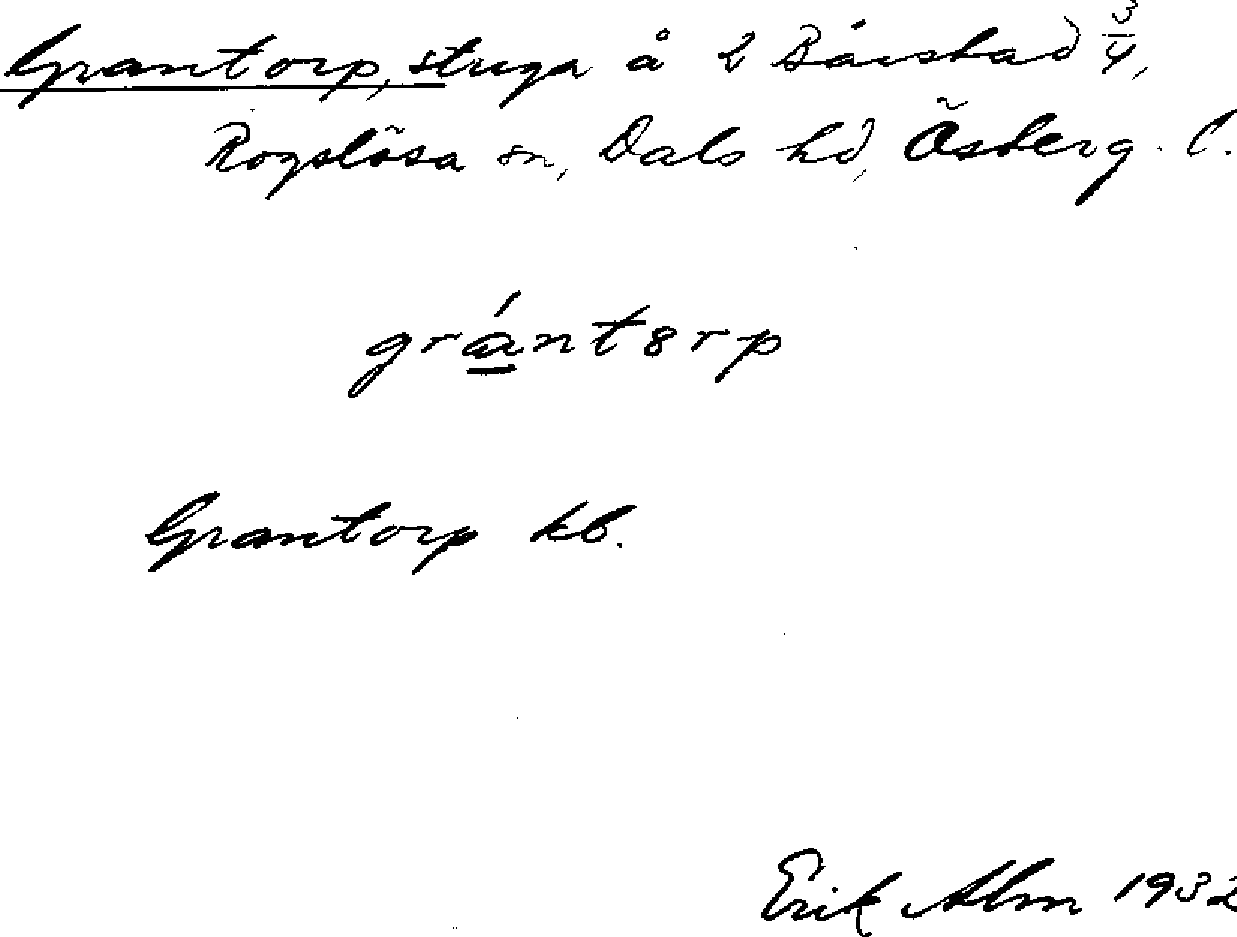 Grantorp, stuga å 2 Bårstad 3/4,
Rogslösa sn, Dals hd, Östergl.
grántorp
Grantorp kb.
Erik Alm 1932